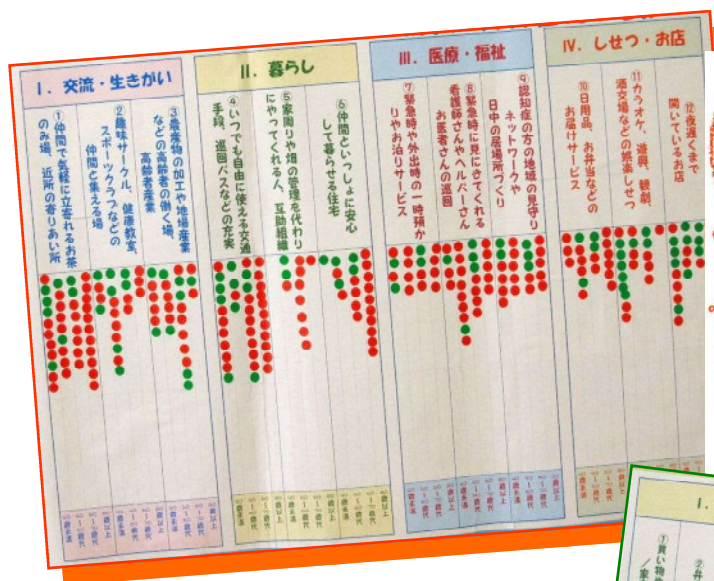 I. 交流・生きがい
①仲間で気軽に立寄れるお茶
のみ場、近所の寄りあい所
②趣味サークル、健康教室、
スポーツクラブなどの
仲間と集える場
③農産物の加工や地場産業
などの高齢者の働く場、
高齢者産業
II. 暮らし
④いつでも自由に使える交通
手段、巡回バスなどの充実
⑤家周りや畑の管理を代わり
にやってくれる人、互助組織
⑥仲間といっしょに安心
して暮らせる住宅
III. 医療・福祉
⑦緊急時や外出時の一時預か
りやお泊りサービス
⑧緊急時に見にきてくれる
看護師さんやヘルパーさん
お医者さんの巡回
⑨認知症の方の地域の見守り
ネットワークや
日中の居場所づくり
IV. しせつ・お店
⑩日用品、お弁当などの
お届けサービス
⑪カラオケ、遊興、観劇、
酒交場などの娯楽しせつ
⑫夜遅くまで
開いているお店
I.
①買い物や